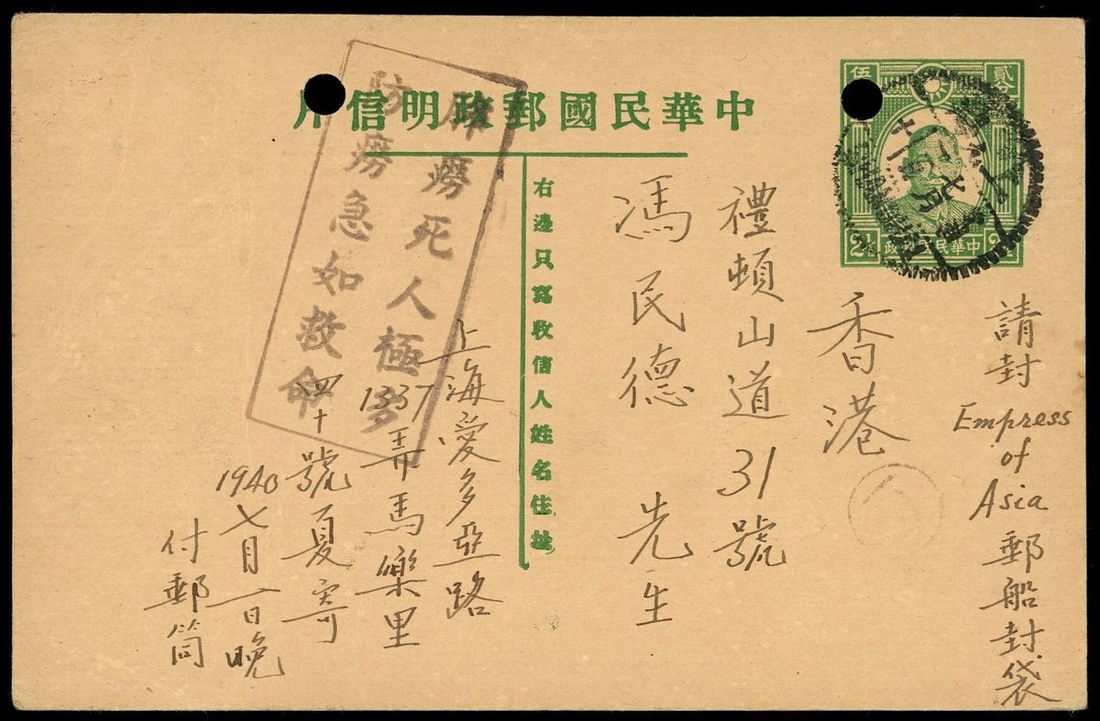 中華民國郵政明信片
右邊只寫收信人姓名住址
中華民國郵政
請封 Empress of Asia 郵船封袋
香港
禮頓山道31號
馮民德 先生
上海愛多亞路
1337弄馬樂里
四十號夏寄
1940 七月一日晚
付郵筒
癆死人極多
防癆急如救命